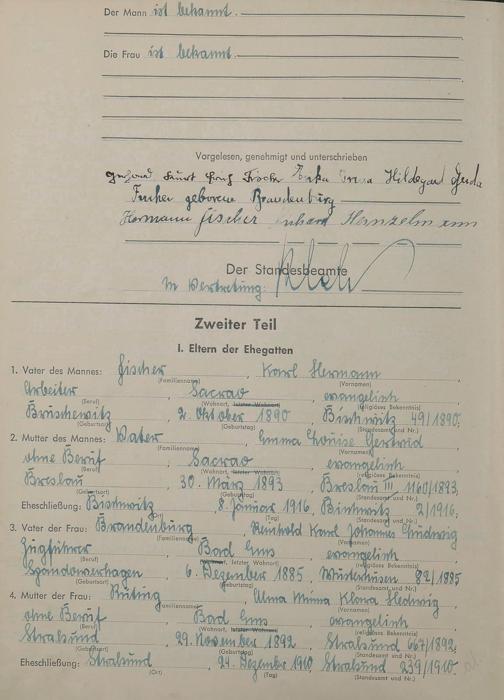 Der Mann ist bekannt.
Die Frau ist bekannt.
Vorgelesen, genehmigt und unterschrieben
Fischer Hildegard Gerda
geborene Brandenburg
Hermann Fischer Hanzelmann
Der Standesbeamte
In Vertretung:
Zweiter Teil
I. Eltern der Ehegatten
1. Vater des Mannes: Fischer Karl Hermann
(Familienname) (Vornamen)
Arbeiter, Sacrau, evangelisch
(Beruf) (Wohnort, letzter Wohnort) (religiöses Bekenntnis)
2. Oktober 1890 49/1890.
(Geburtsort) (Geburtstag) (Standesamt und Nr.)
2. Mutter des Mannes: Emma Louise Gertrud
(Familienname) (Vornamen)
ohne Beruf, Sacrau, evangelisch
(Beruf) (Wohnort, letzter Wohnort) (religiöses Bekenntnis)
Breslau, 30. März 1893 Breslau III 1160/1893,
(Geburtsort) (Geburtstag) (Standesamt und Nr.)
Eheschließung: 8. Januar 1916, 2/1916.
(Ort) (Tag) (Standesamt und Nr.)
3. Vater der Frau: Brandenburg, Reinhold Karl Johannes Ludwig
(Familienname) (Vornamen)
Zugführer Bad Ems evangelisch
(Beruf) (Wohnort, letzter Wohnort) (religiöses Bekenntnis)
Spandowerhagen 6. Dezember 1885, Wusterhusen 82/1885
(Geburtsort) (Geburtstag) (Standesamt und Nr.)
4. Mutter der Frau: Alma Minna Klara Hedwig
(Familienname) (Vornamen)
ohne Beruf, Bad Ems, evangelisch
(Beruf) (Wohnort, letzter Wohnort) (religiöses Bekenntnis)
Stralsund, 29. November 1892 Stralsund 667/1892,
(Geburtsort) (Geburtstag) (Standesamt und Nr.)
Eheschließung: Stralsund, 24. Dezember 1910 Stralsund 239/1910.
(Ort) (Tag) (Standesamt und Nr.)